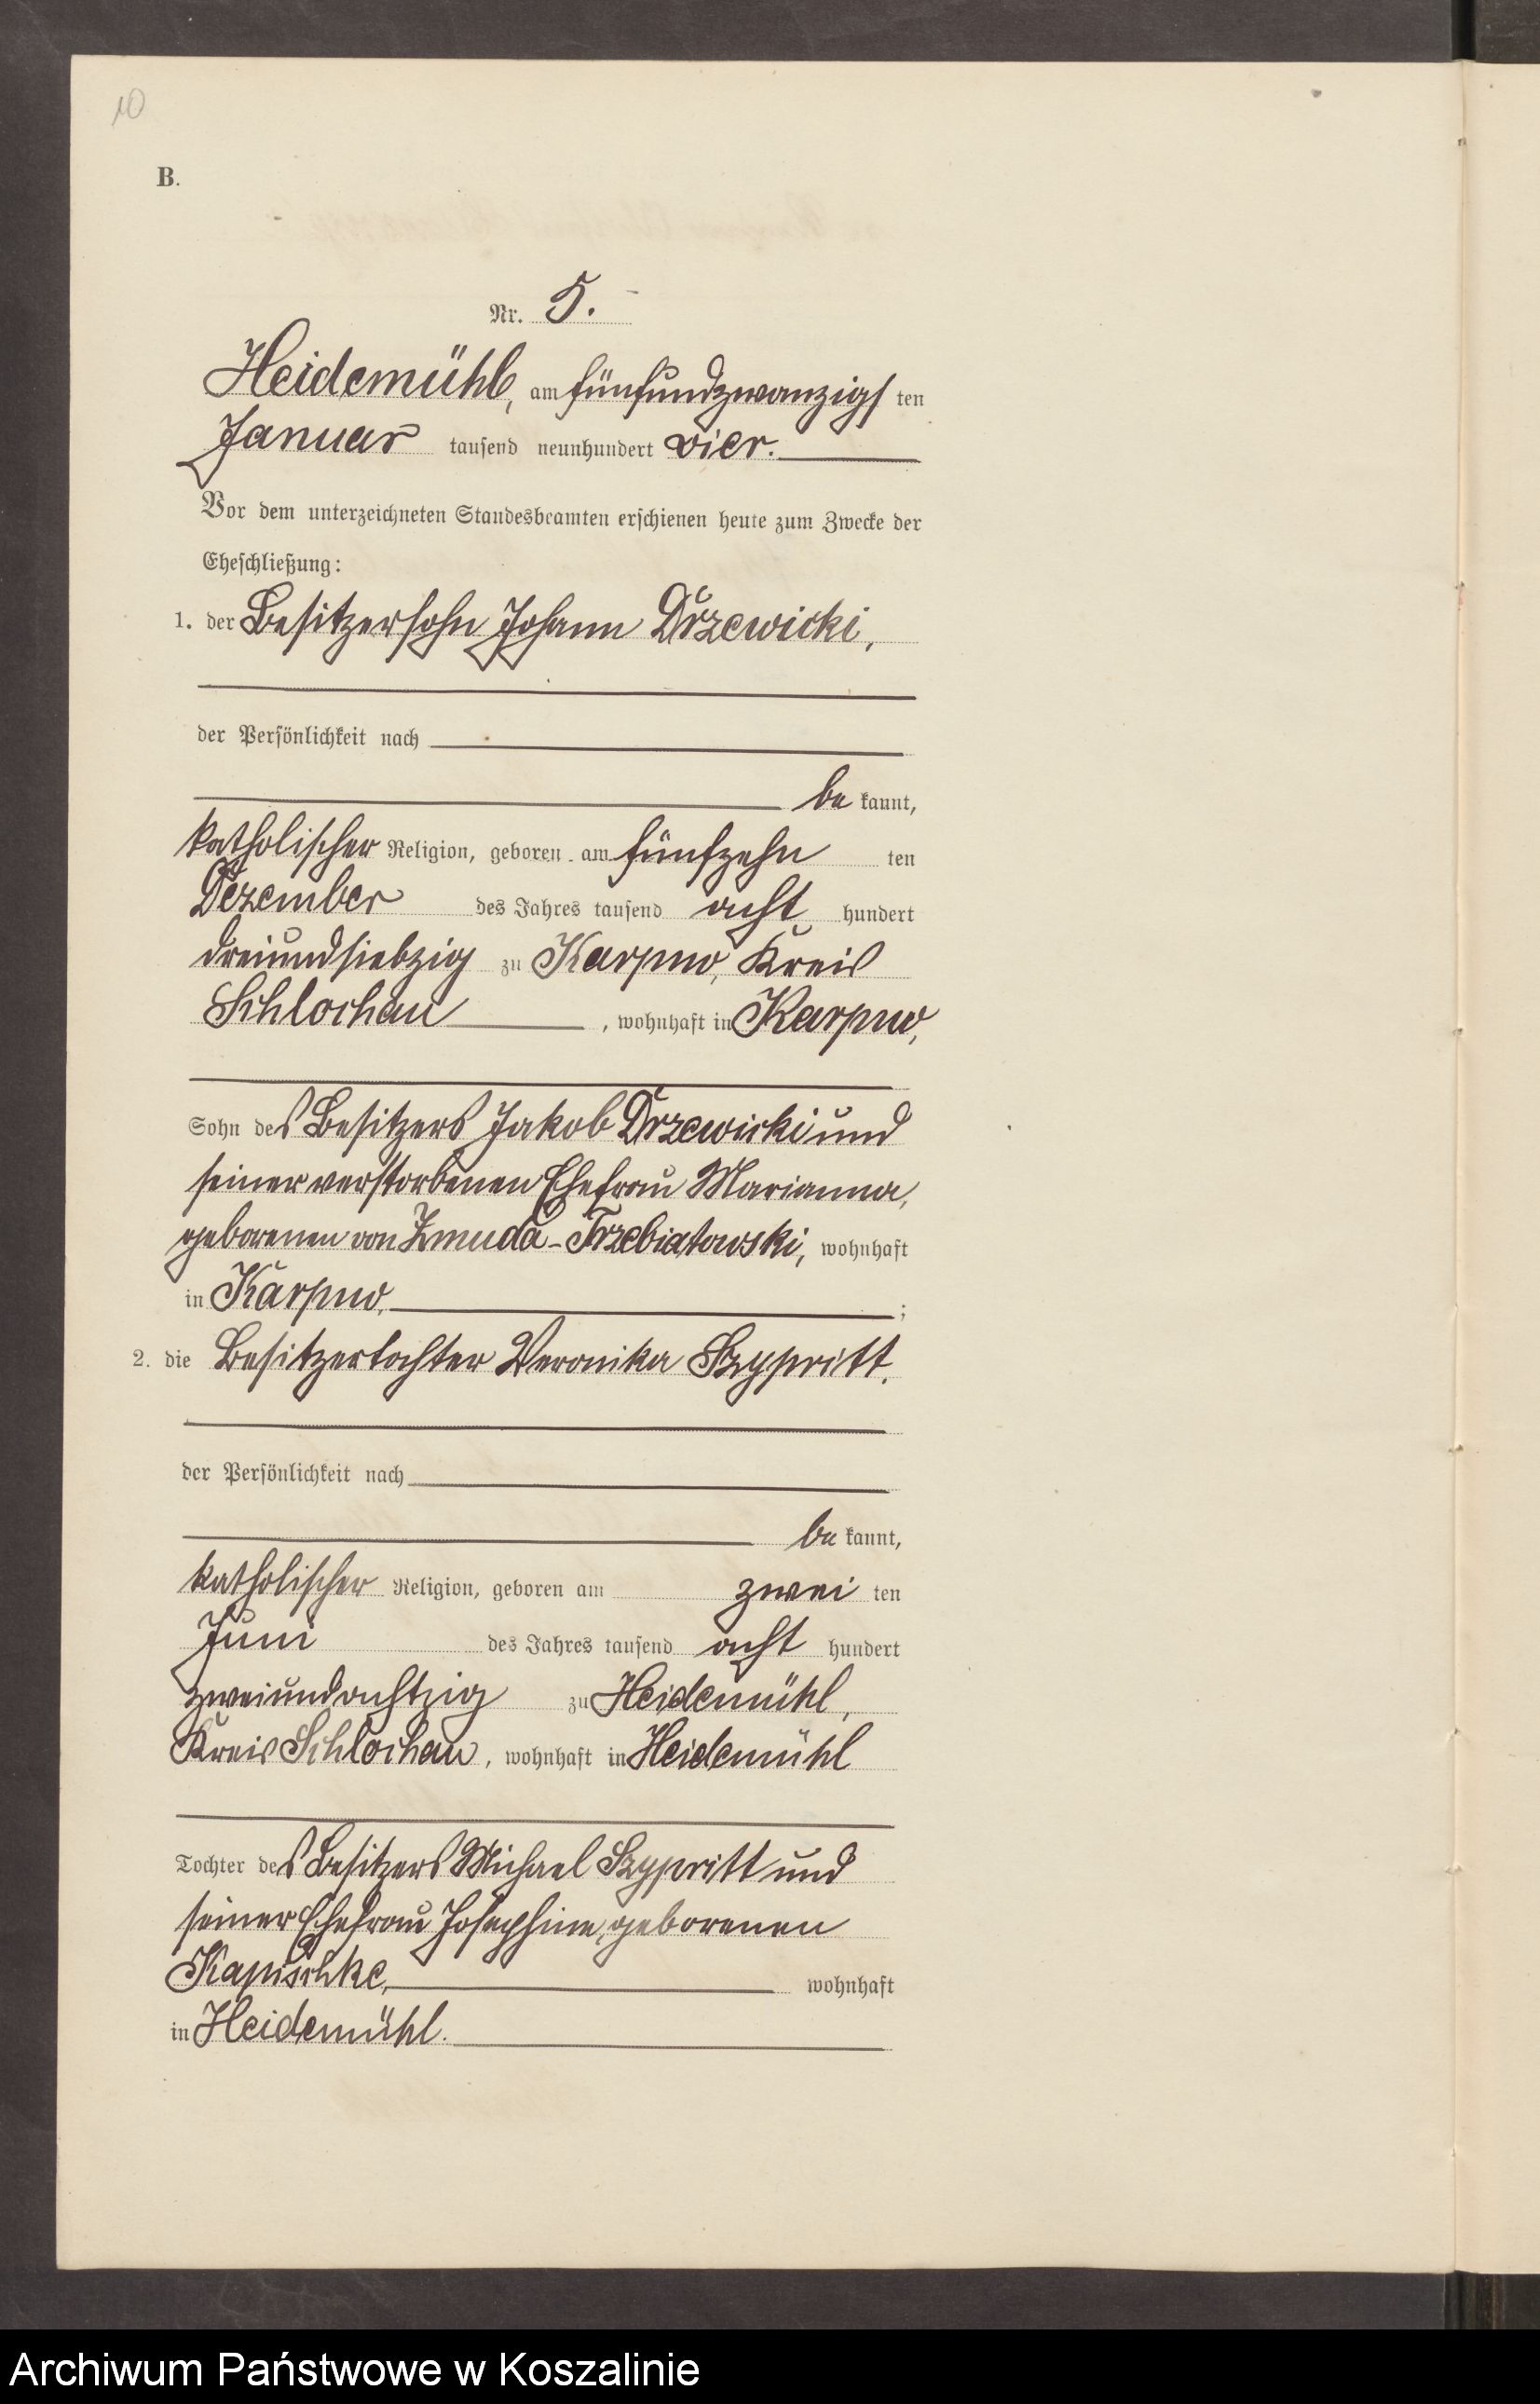 10
B.
Nr. 5.
Heidemühl, am fünfundzwanzigsten
Januar tausend neunhundert vier.
Vor dem unterzeichneten Standesbeamten erschienen heute zum Zwecke der
Eheschließung:
1. der Besitzersohn Johann Drzewicki,
der Persönlichkeit nach
be kannt,
katholischer Religion, geboren am fünfzehn ten
Dezember des Jahres tausend acht hundert
dreiundsiebzig zu Karpno, Kreis
Schlochau, wohnhaft in Karpno,
Sohn des Besitzers Jakob Drzewicki und
seiner verstorbenen Ehefrau Marianna,
geborenen von Zmuda-Trzebiatowski, wohnhaft
in Karpno, ;
2. die Besitzertochter Veronika Szypritt,
der Persönlichkeit nach
be kannt,
katholischer Religion, geboren am zwei ten
Juni des Jahres tausend acht hundert
zweiundachtzig zu Heidemühl,
Kreis Schlochau, wohnhaft in Heidemühl
Tochter des Besitzers Michael Szypritt und
seiner Ehefrau Josephine, geborenen
Kapischke, wohnhaft
in Heidemühl.
Archiwum Państwowe w Koszalinie